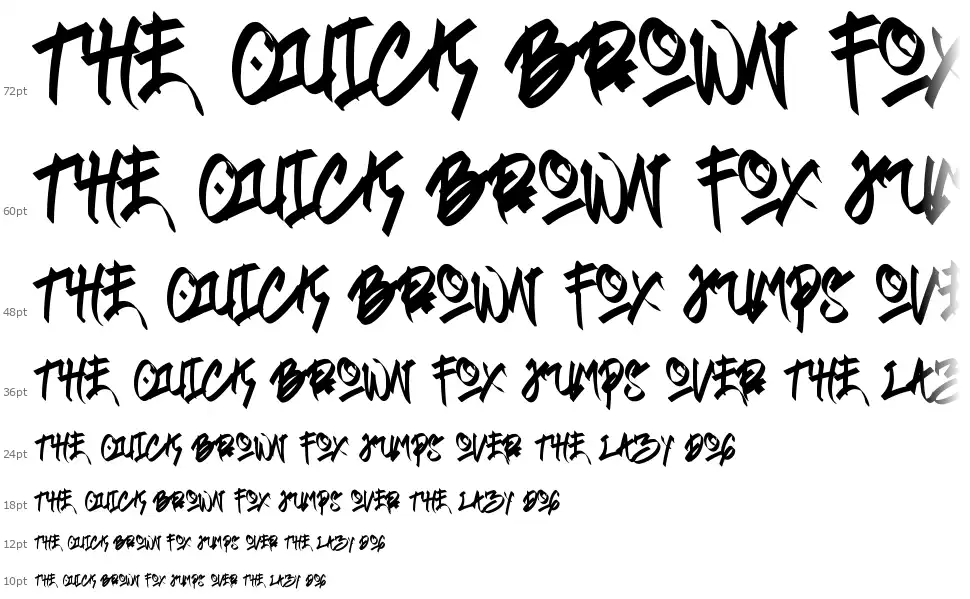 72pt THE QUICK BROWN FOX
60pt THE QUICK BROWN FOX JUM
48pt THE QUICK BROWN FOX JUMPS OVE
36pt THE QUICK BROWN FOX JUMPS OVER THE LAZ
24pt THE QUICK BROWN FOX JUMPS OVER THE LAZY DOG
18pt THE QUICK BROWN FOX JUMPS OVER THE LAZY DOG
12pt THE QUICK BROWN FOX JUMPS OVER THE LAZY DOG
10pt THE QUICK BROWN FOX JUMPS OVER THE LAZY DOG